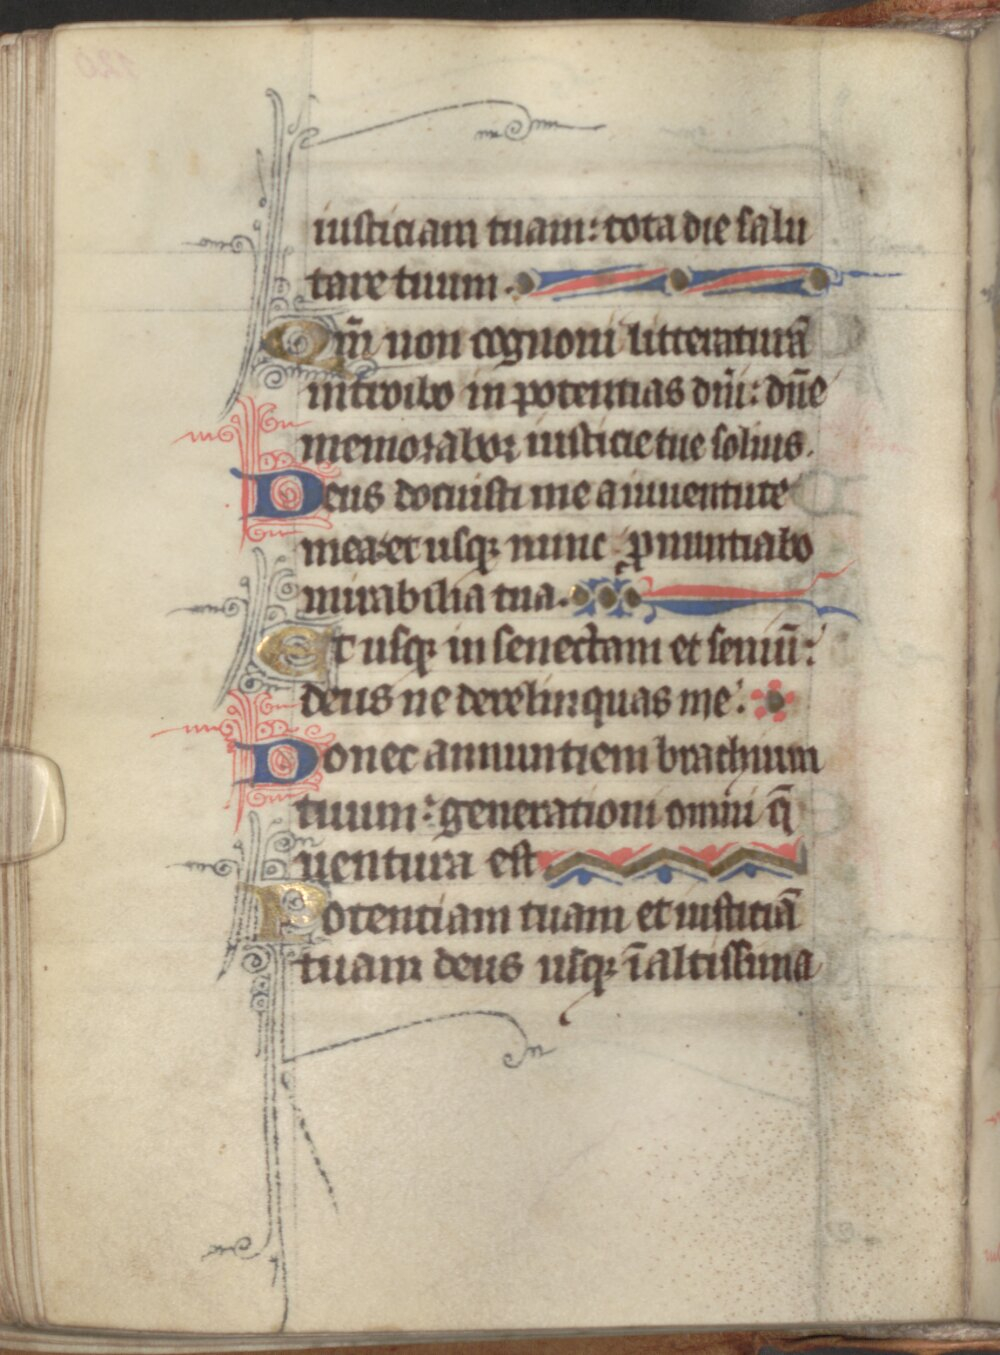 iusticiam tuam: tota die salu
tare tuum.
Qm̄ non cognoui litteraturā
introibo in potentias dn̄i: dn̄e
memorabor iusticie tue solius.
Deus docuisti me a iuuentute
mea: et usq; nunc ꝓnuntiabo
mirabilia tua.
Et usq; in senectam et seniū:
deus ne derelinquas me.
Donec annuntiem brachium
tuum: generationi omni q̄
uentura est
Potentiam tuam et iusticiā
tuam deus usq; ī altissima